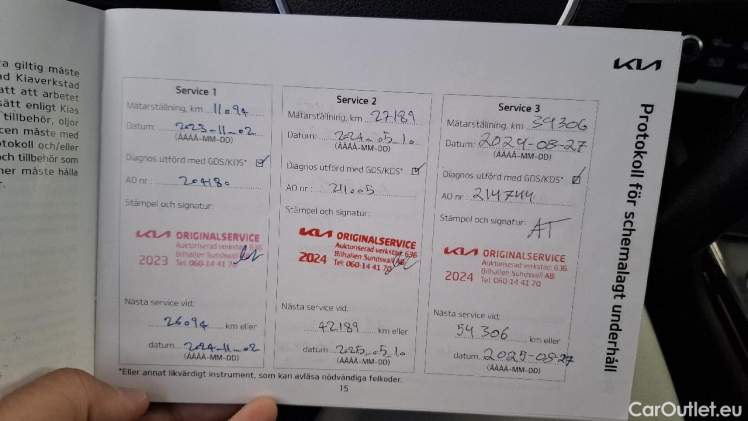 ra giltig måste
ad Kiaverkstad
att att arbetet
sätt enligt Kias
tillbehör, oljor
cken måste med
otokoll och/eller
och tillbehör som
ner måste hålla
r.
KIA
Protokoll för schemalagt underhåll
Service 1
Mätarställning, km 11094
Datum: 2023-11-02
(ÅÅÅÅ-MM-DD)
Diagnos utförd med GDS/KDS*
AO nr: 204180
Stämpel och signatur:
KIA ORIGINALSERVICE
Auktoriserad verkstad 636
Bilhallen Sundsvall AB
2023 Tel: 060-14 41 70
Nästa service vid:
26094 km eller
datum 2024-11-02
(ÅÅÅÅ-MM-DD)
Service 2
Mätarställning, km 27189
Datum: 2024-05-10
(ÅÅÅÅ-MM-DD)
Diagnos utförd med GDS/KDS*
AO nr: 211005
Stämpel och signatur:
KIA ORIGINALSERVICE
Auktoriserad verkstad 636
Bilhallen Sundsvall AB
2024 Tel: 060-14 41 70
Nästa service vid:
42189 km eller
datum 2025-05-10
(ÅÅÅÅ-MM-DD)
Service 3
Mätarställning, km 39306
Datum: 2024-08-27
(ÅÅÅÅ-MM-DD)
Diagnos utförd med GDS/KDS*
AO nr: 214744
Stämpel och signatur: AT
KIA ORIGINALSERVICE
Auktoriserad verkstad 636
Bilhallen Sundsvall AB
2024 Tel: 060-14 41 70
Nästa service vid:
54306 km eller
datum 2025-08-27
(ÅÅÅÅ-MM-DD)
*Eller annat likvärdigt instrument, som kan avläsa nödvändiga felkoder.
15
CarOutlet.eu